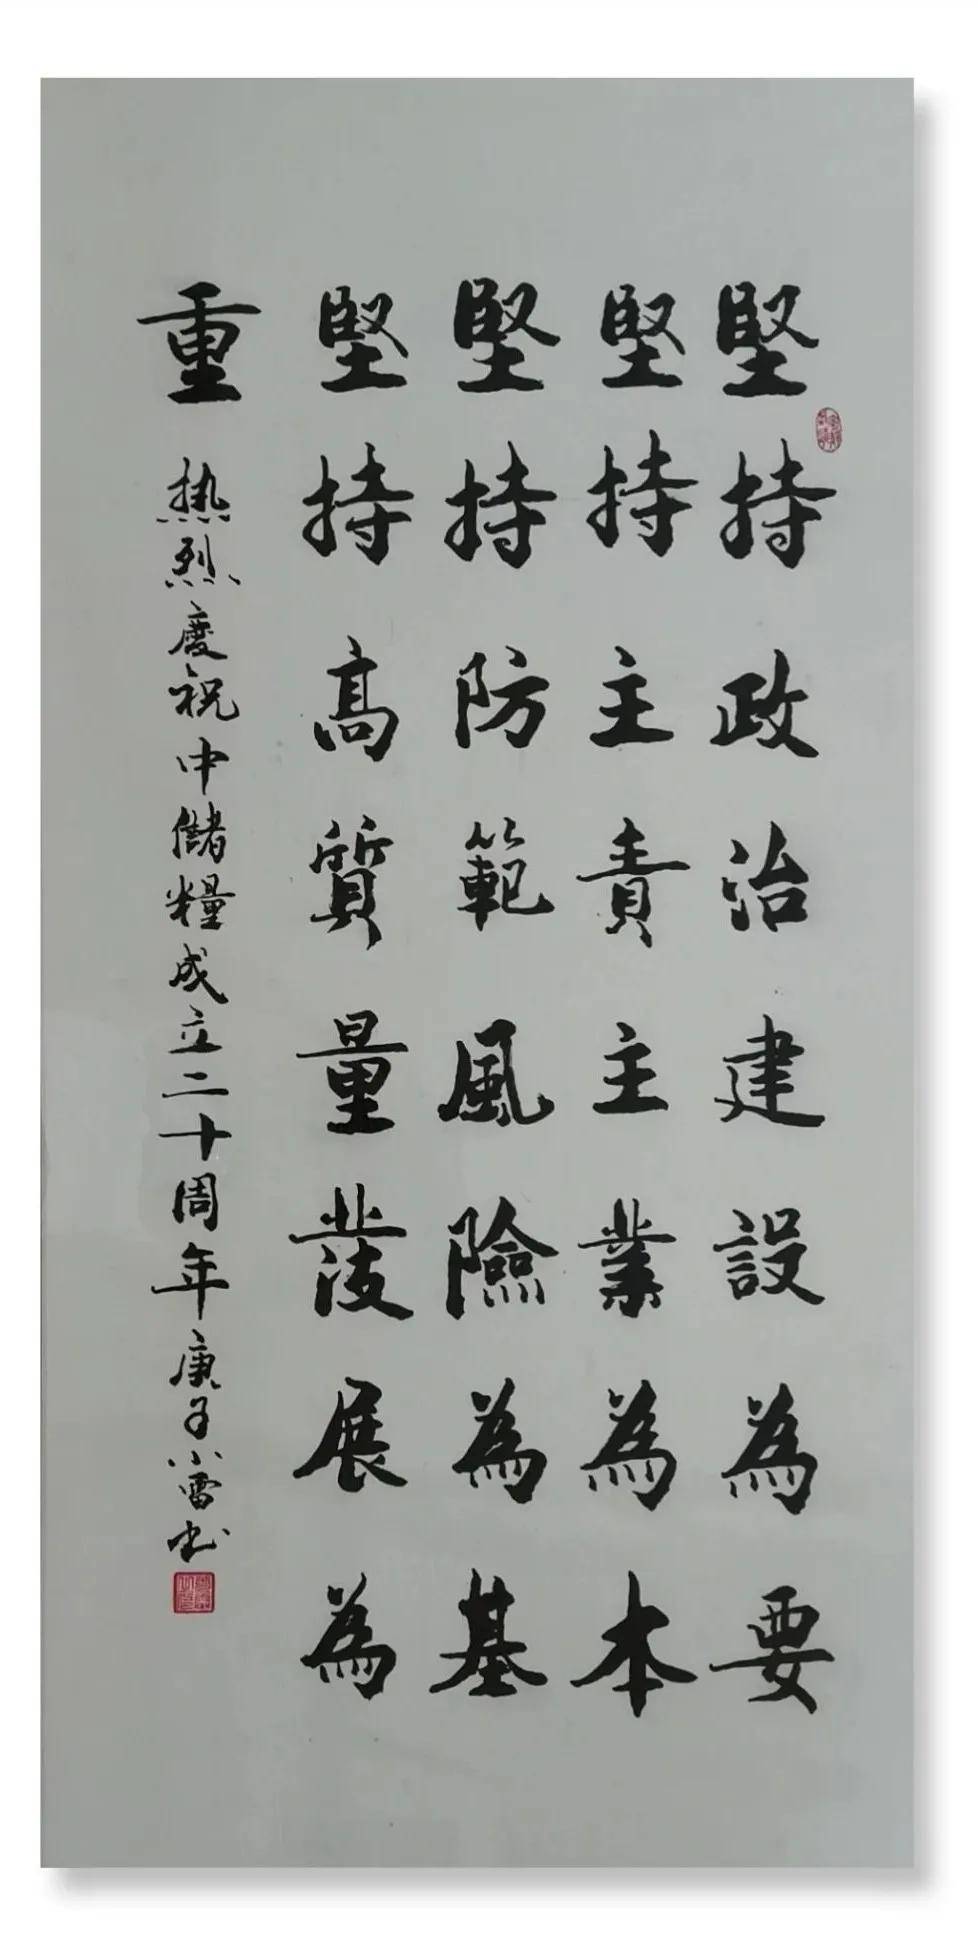 堅持政治建設為要
堅持主責主業為本
堅持防範風險為基
堅持高質量發展為
重
热烈慶祝中儲糧成立二十周年庚子小雷书